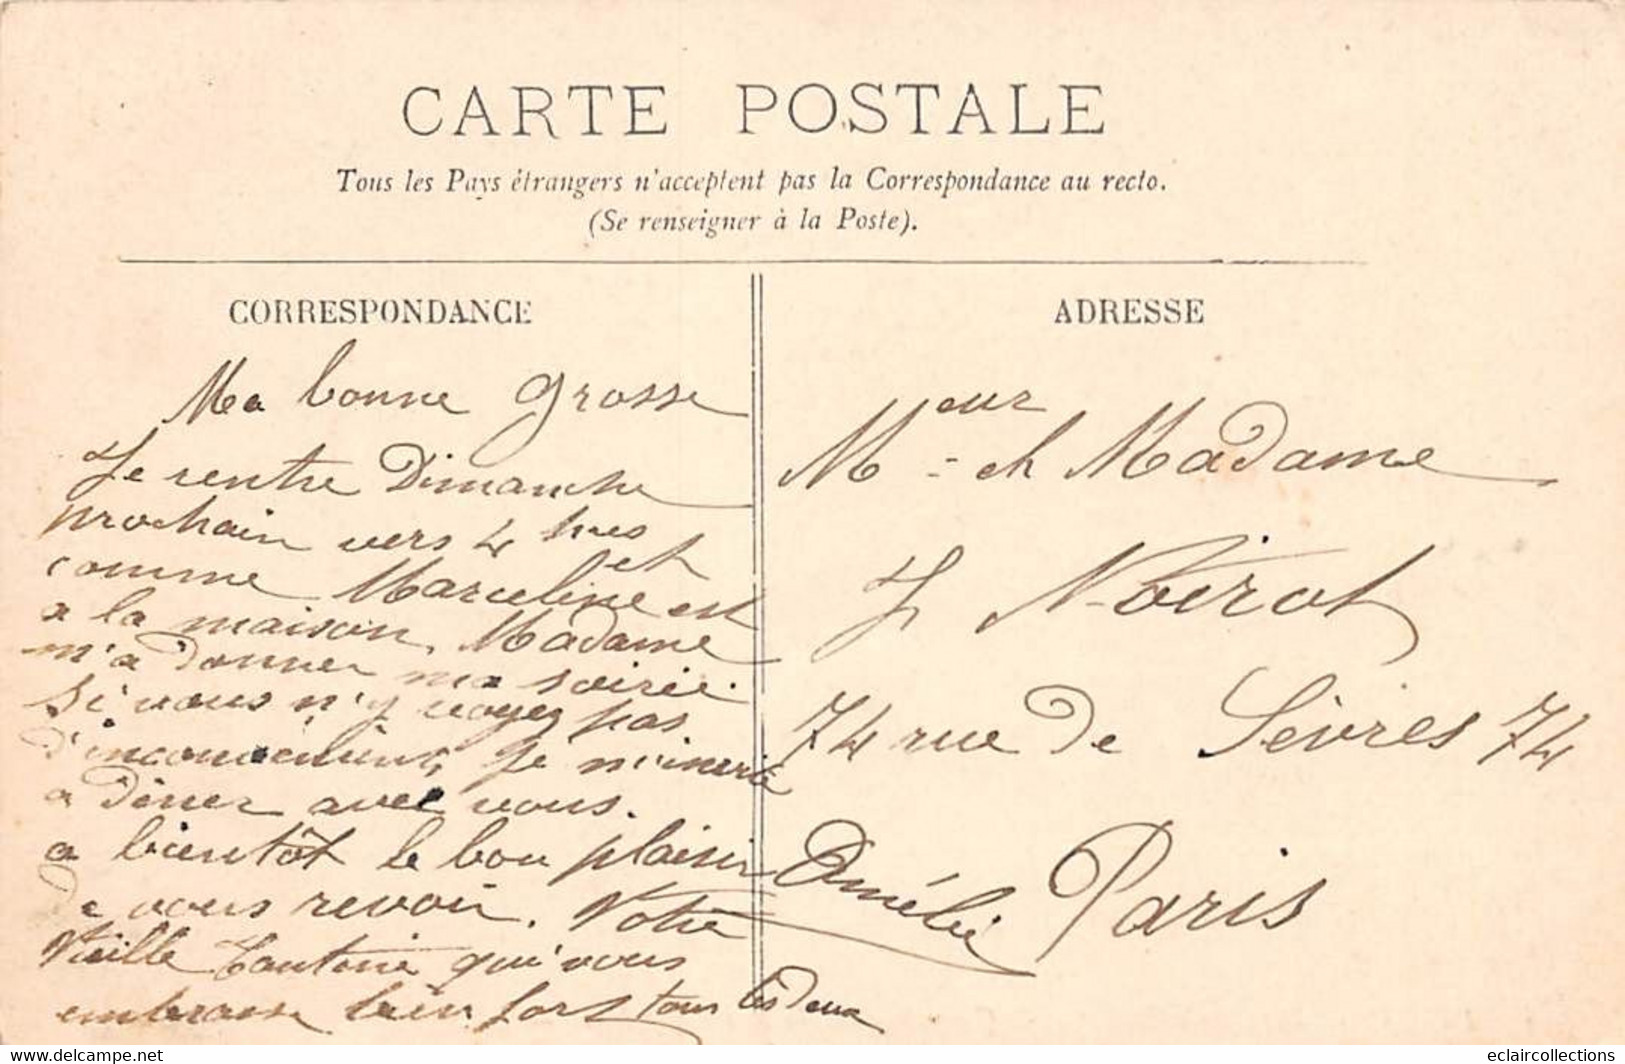 CARTE POSTALE
Tous les Pays étrangers n'acceptent pas la Correspondance au recto.
(Se renseigner à la Poste).
CORRESPONDANCE
Ma bonne grosse
Je rentre Dimanche
prochain vers 4 hres et
comme Marceline est
a la maison, Madame
m'a donner ma soirée.
Si vous n'y voyez pas
d'inconvenient, je m'invite
a Diner avec vous.
a bientôt le bon plaisir
De vous revoir. Votre
Vieille Tantine qui vous
embrasse bien fort tous les Deux
Amélie
ADRESSE
Meur et Madame
J Noirot
74 rue De Sèvres 74
Paris
www.delcampe.net
eclaircollections